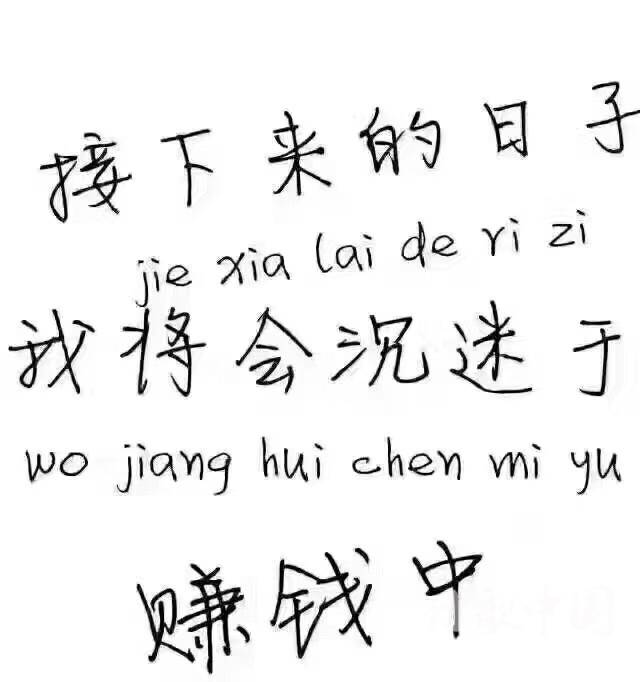 接下来的日子
jie xia lai de ri zi
我将会沉迷于
wo jiang hui chen mi yu
赚钱中